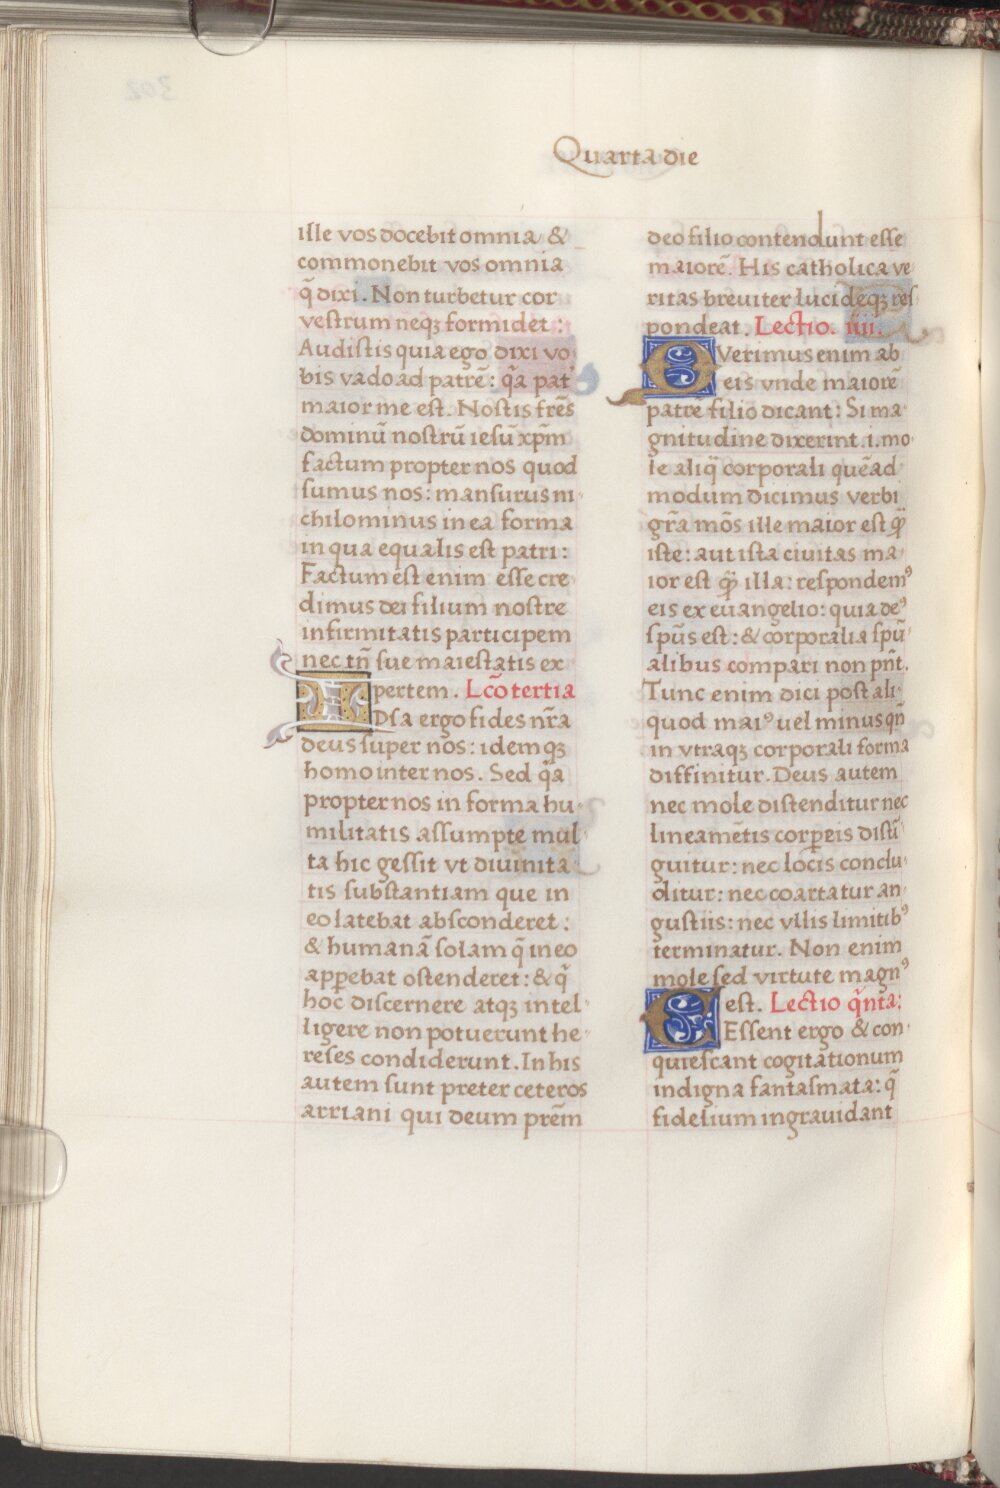 Quarta die
ille vos docebit omnia &
commonebit vos omnia
q̃ dixi. Non turbetur cor
vestrum neqȝ formidet:
Audistis quia ego dixi vo
bis vado ad patrẽ: q̃a pat̃
maior me est. Nostis fr̃es
dominũ nostrũ iesũ xp̃m
factum propter nos quod
sumus nos: mansurus ni
chilominus in ea forma
in qua equalis est patri:
Factum est enim esse cre
dimus dei filium nostre
infirmitatis participem
nec tñ sue maiestatis ex
pertem. Lc̃o tertia
Ipsa ergo fides nr̃a
deus super nos: idemqȝ
homo inter nos. Sed q̃a
propter nos in forma hu
militatis assumpte mul
ta hic gessit vt diuinita
tis substantiam que in
eo latebat absconderet:
& humanã solam q̃ in eo
apꝑebat ostenderet: & q̃
hoc discernere atqȝ intel
ligere non potuerunt he
reses condiderunt. In his
autem sunt preter ceteros
arriani qui deum prẽm
deo filio contendunt esse
maiorẽ. His catholica ve
ritas breuiter lucideqȝ res
pondeat. Lectio. iiii.
Qverimus enim ab
eis vnde maiorẽ
patrẽ filio dicant: Si ma
gnitudine dixerint .i. mo
le aliq̃ corporali quẽad
modum dicimus verbi
gr̃a mõs ille maior est q̃
iste: aut ista ciuitas ma
ior est q̃ illa: respondemꝰ
eis ex euangelio: quia deꝰ
sp̃us est: & corporalia sp̃u
alibus compari non pñt.
Tunc enim dici post ali
quod maiꝰ uel minus qñ
in vtraqȝ corporali forma
diffinitur. Deus autem
nec mole distenditur nec
lineamẽtis corꝑeis distĩ
guitur: nec locis conclu
ditur: nec coartatur an
gustiis: nec vllis limitibꝰ
terminatur. Non enim
mole sed virtute magnꝰ
est. Lectio q̃nta:
CEssent ergo & con
quiescant cogitationum
indigna fantasmata: q̃
fidelium ingrauidant